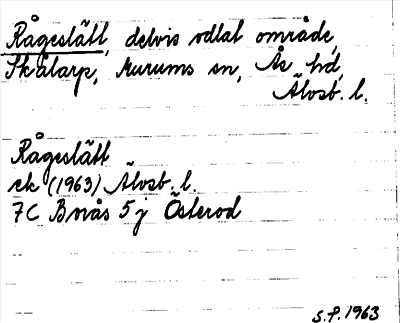 Rågeslätt, delvis odlat område,
Skålarp, Murums sn, Ås hd,
Älvsb. l.
Rågeslätt
ek (1963) Älvsb. l.
7C Borås 5j Österod
S.F. 1963